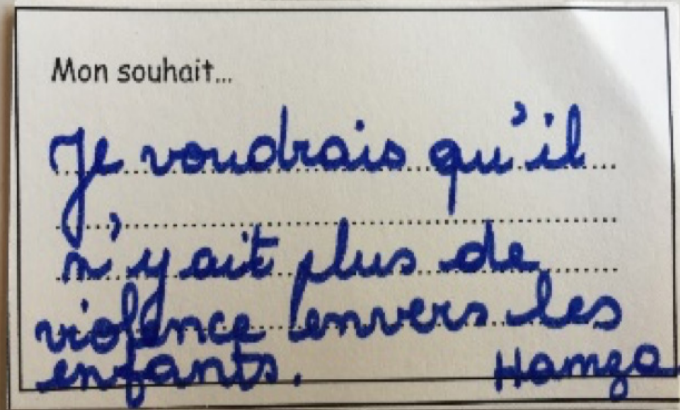 Mon souhait...
Je voudrais qu'il
n'y ait plus de
violence envers les
enfants. Hamza